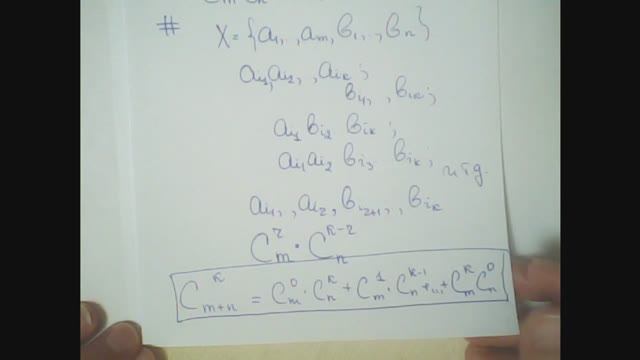 # X = {a₁, , aₘ, b₁, . , bₙ}
aᵢ₁, aᵢ₂, , aᵢₖ;
bᵢ₁, , bᵢₖ;
aᵢ₁ bᵢ₂ bᵢₖ;
aᵢ₁ aᵢ₂ bᵢ₃ bᵢₖ; и т.д.
aᵢ₁, , aᵢᵣ, bᵢᵣ₊₁, , bᵢₖ
Cₘʳ · Cₙᵏ⁻ʳ
Cₘ₊ₙᵏ = Cₘ⁰ · Cₙᵏ + Cₘ¹ · Cₙᵏ⁻¹ + ... + Cₘᵏ Cₙ⁰